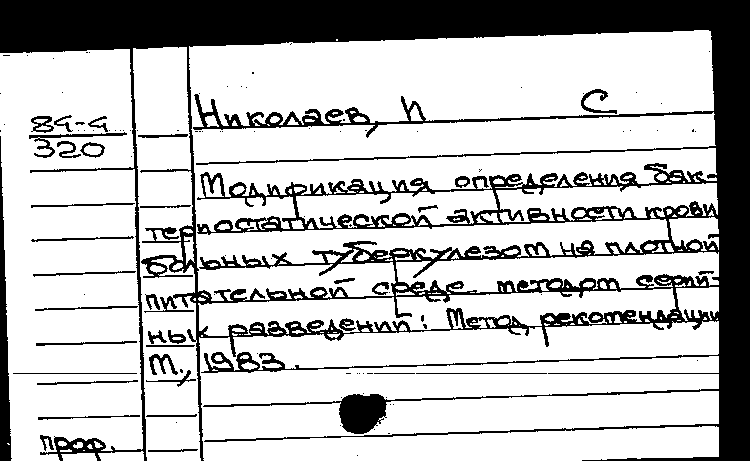 Николаев, И С
84-4
320
Модификация определения бак-
териостатической активности крови
больных туберкулезом на плотной
питательной среде методом серий-
ных разведений: Метод, рекомендации
М., 1983.
проф.